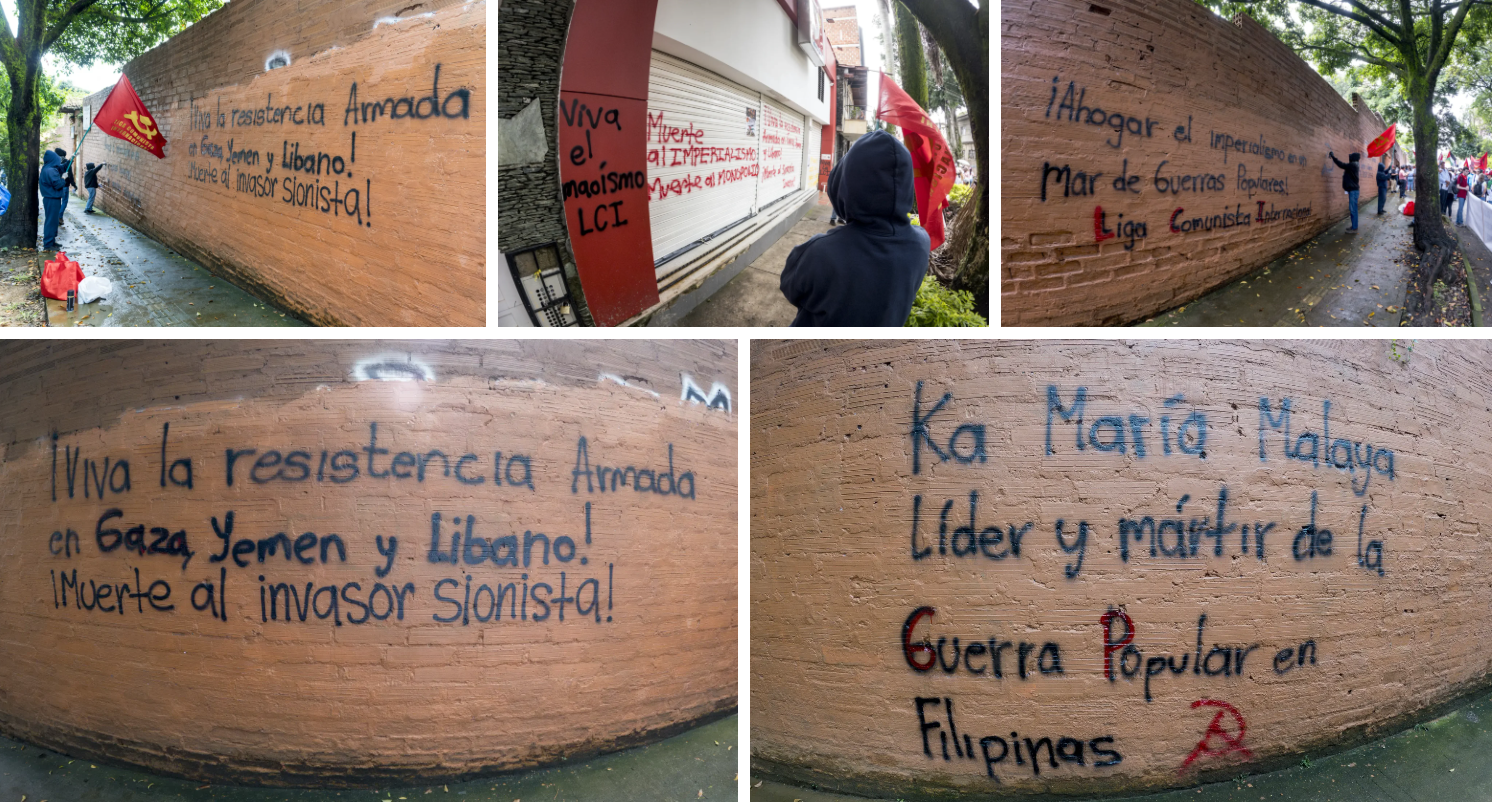 ¡Viva la resistencia Armada
en Gaza, Yemen y Libano!
Muerte al invasor sionista!
Viva
el
maoísmo
LCI
Muerte
al IMPERIALISMO
Muerte al MONOPOLIO
¡Ahogar el imperialismo en un
mar de Guerras Populares!
Liga Comunista Internacional
¡Viva la resistencia Armada
en Gaza, Yemen y Libano!
¡Muerte al invasor sionista!
Ka María Malaya
Líder y mártir de la
Guerra Popular en
Filipinas